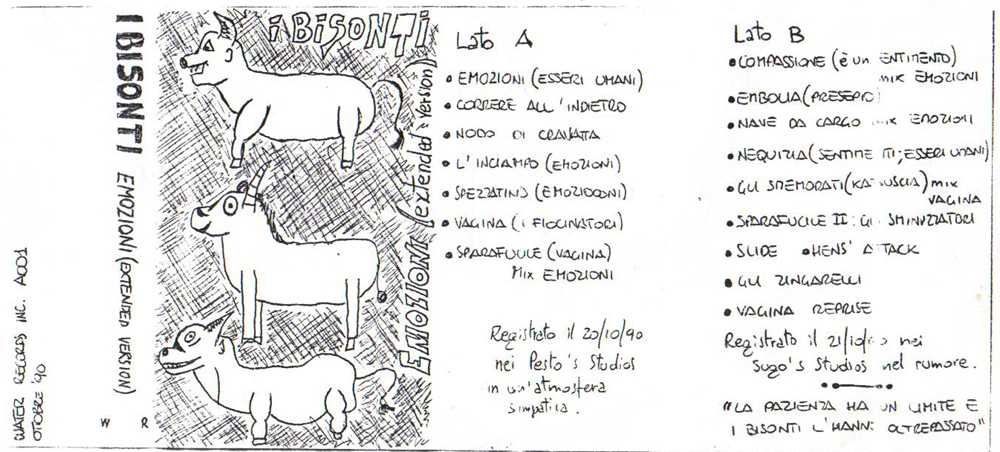 WATER RECORDS INC. A001
OTTOBRE '90
I BISONTI EMOZIONI (EXTENDED VERSION)
W R
I BISONTI
EMOZIONI (extended version)
Lato A
• EMOZIONI (ESSERI UMANI)
• CORRERE ALL'INDIETRO
• NODO DI CRAVATTA
• L'INCIAMPO (EMOZIONI)
• SPEZZATINO (EMOZIODONI)
• VAGINA (I FIOCINATORI)
• SPARAFUCILE (VAGINA)
MIX EMOZIONI
Registrato il 20/10/90
nei Pesto's Studios
in un'atmosfera
simpatica.
Lato B
• COMPASSIONE (È UN ENTIMENTO)
MIX EMOZIONI
• EMBOLIA (PRESEPIO)
• NAVE DA CARGO MIX EMOZIONI
• NEQUIZIA (SENTIME TI; ESSERI UMANI)
• GLI SMEMORATI (KATIUSCIA) MIX
VAGINA
• SPARAFUCILE II: GLI SMINUZZATORI
• SLIDE ATTACK
• GLI ZINGARELLI
• VAGINA REPRISE
Registrato il 21/10/90 nei
Sugo's Studios nel rumore.
"LA PAZIENZA HA UN LIMITE E
I BISONTI L'HANNO OLTREPASSATO"